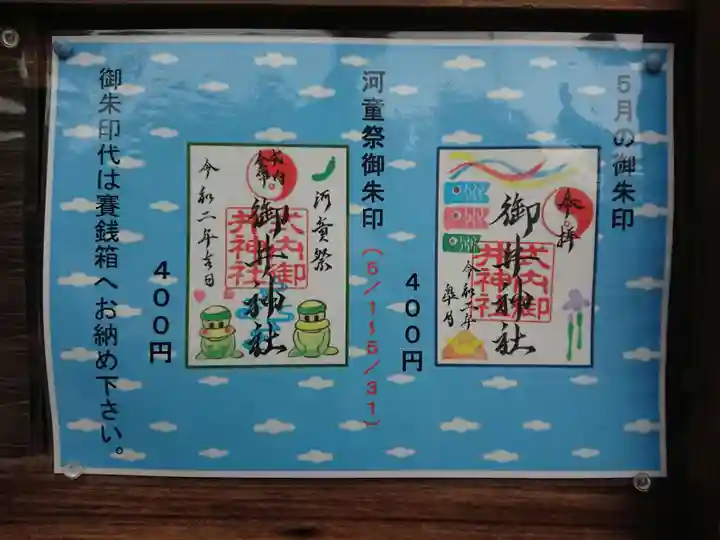 5月の御朱印
奉拝
御井神社
式内御井神社
令和二年
皐月
400円
河童祭御朱印
(5/1~5/31)
河童祭
奉拝
式内
御井神社
式内御井神社
令和二年吉日
400円
御朱印代は賽銭箱へお納め下さい。